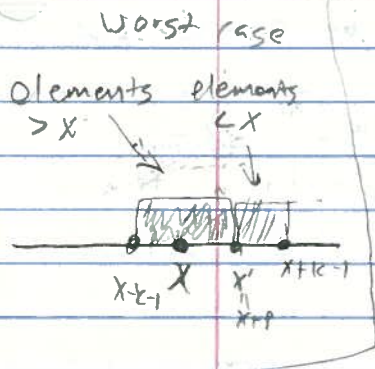 worst case
elements elements
> X < X
X-k-1 X X' X+k-1
"
X+p